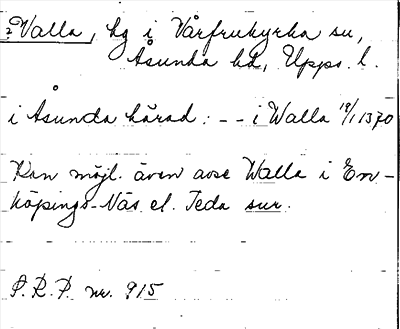 ? Valla, hg i Vårfrukyrka sn,
Åsunda hd, Upps. l.
i Åsunda härad: -- i Walla 18/1 1370
Kan möjl. även avse Walla i En-
köpings-Näs el. Teda snr.
P.R.P. nr. 915